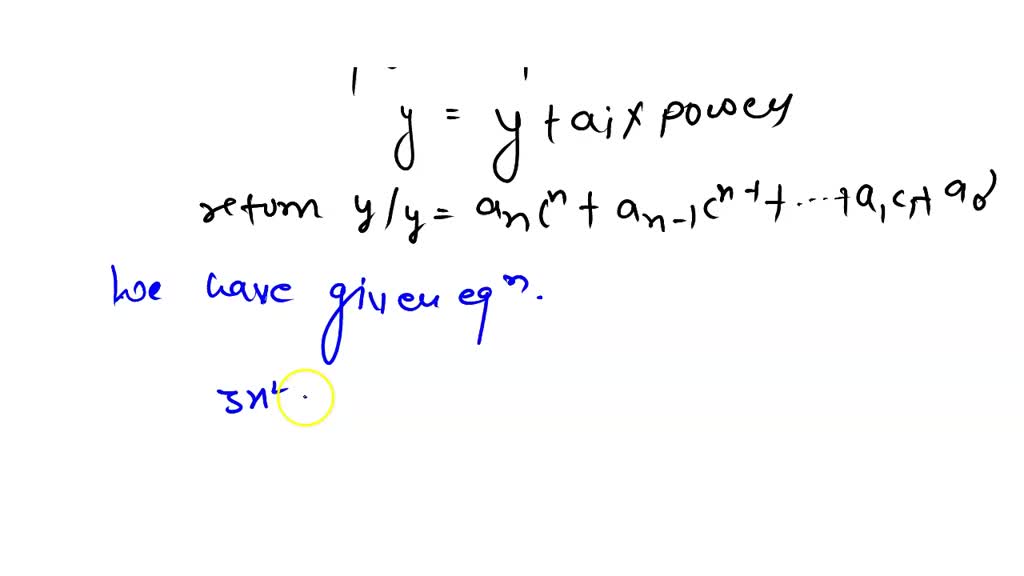 y = y + ai * power
return y / y = aₙcⁿ + aₙ₋₁cⁿ⁻¹ + ... + a₁c + a₀
We have given eqⁿ.
3x²